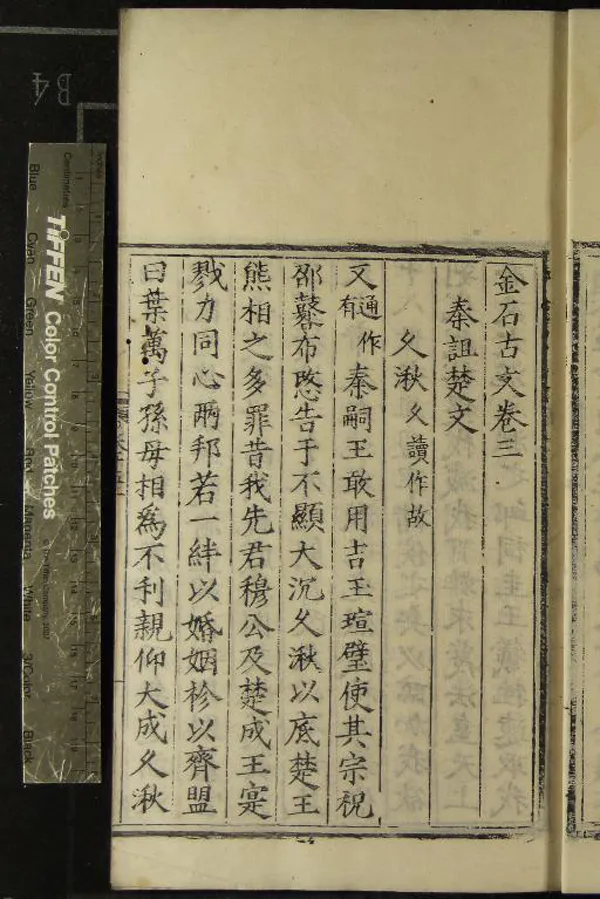 金石古文卷三
秦詛楚文
久湫久讀作故
又通作有秦嗣王敢用吉玉瑄璧使其宗祝
邵鼛布愍告于不顯大沉久湫以底楚王
熊相之多罪昔我先君穆公及楚成王寔
戮力同心兩邦若一絆以婚姻袗以齊盟
曰葉萬子孫毋相為不利親仰大成久湫
B4
Inches
Centimetres
TIFFEN Color Control Patches
Blue
Cyan
Green
Yellow
Red
Magenta
White
3/Color
Black